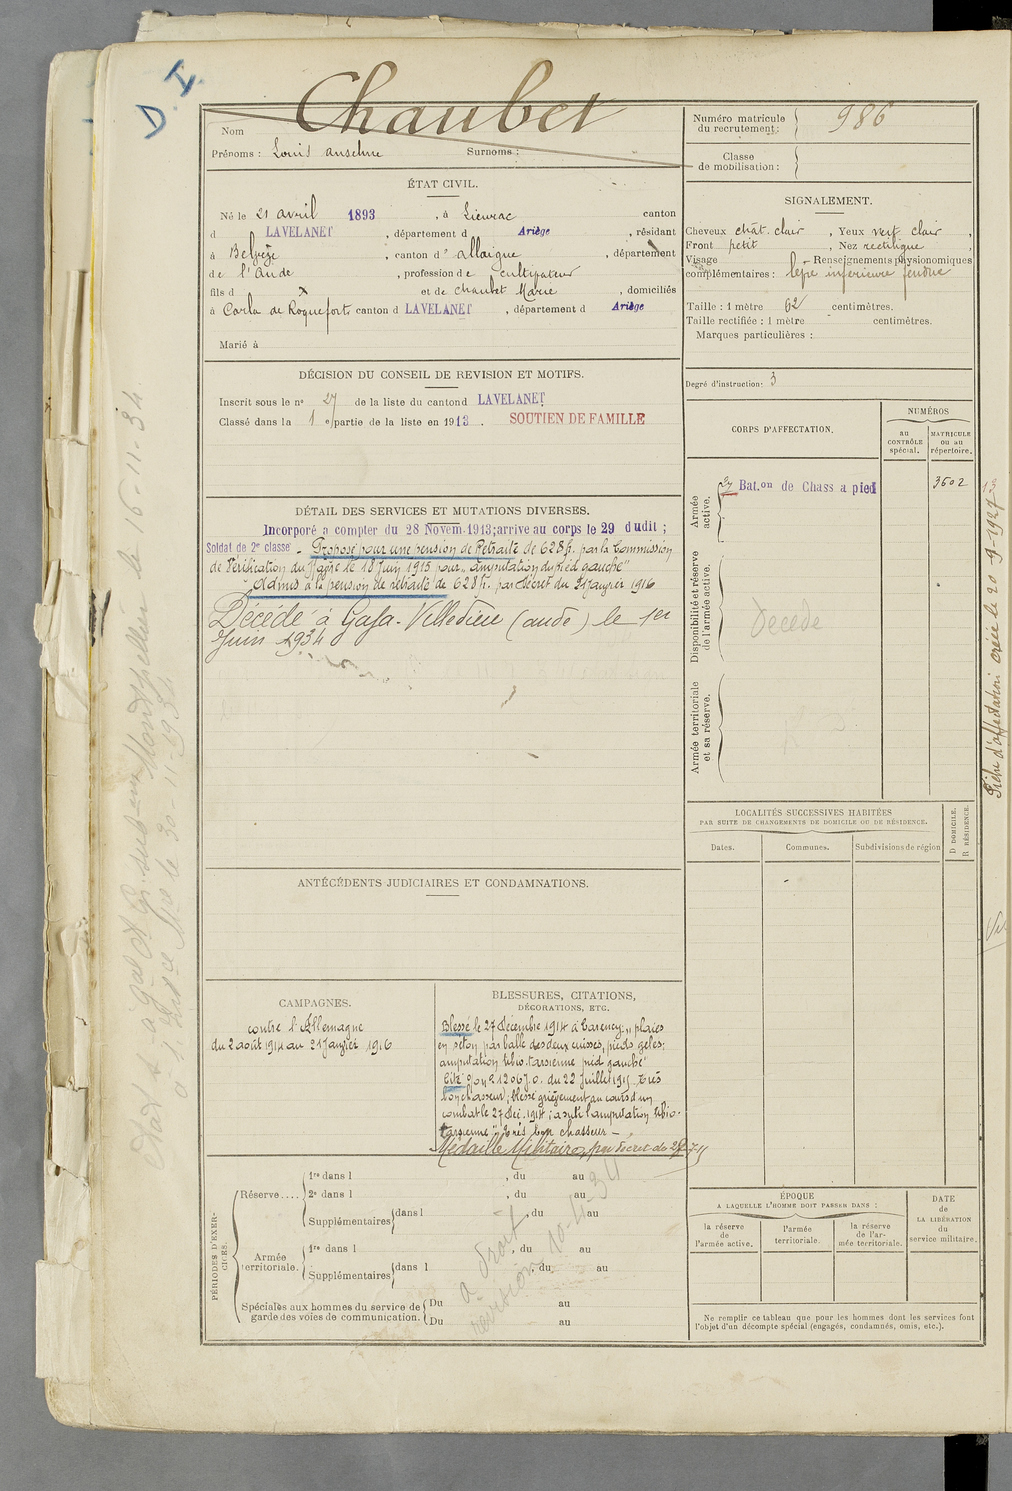 D. I.
Chaubet
Nom
Prénoms : Louis anselme Surnoms :
Numéro matricule
du recrutement : 986
Classe
de mobilisation :
ÉTAT CIVIL.
Né le 21 avril 1893, à Lieurac canton
d LAVELANET, département d Ariège, résidant
à Belvèze, canton d' allaigne, département
de l'Aude, profession de cultivateur
fils d x et de chaubet Marie, domiciliés
à Carla de Roquefort, canton d LAVELANET, département d Ariège
Marié à
SIGNALEMENT.
Cheveux chât. clair, Yeux vert clair,
Front petit, Nez rectiligne
Visage Renseignements physionomiques
complémentaires : lèpre inférieure fendue
Taille : 1 mètre 62 centimètres.
Taille rectifiée : 1 mètre centimètres.
Marques particulières :
Degré d'instruction : 3
DÉCISION DU CONSEIL DE REVISION ET MOTIFS.
Inscrit sous le no 27 de la liste du canton d LAVELANET
Classé dans la 1e partie de la liste en 1913. SOUTIEN DE FAMILLE
CORPS D'AFFECTATION.
NUMÉROS
au
CONTRÔLE
spécial.
MATRICULE
ou au
répertoire.
Armée
active.
27 Bat.on de Chass a pied 3502
Disponibilité et réserve
de l'armée active.
Décédé
Armée territoriale
et sa réserve.
DÉTAIL DES SERVICES ET MUTATIONS DIVERSES.
Incorporé a compter du 28 Novem. 1913; arrive au corps le 29 dudit ;
Soldat de 2e classe - Proposé pour une pension de Retraite de 628f. par la Commission
de Vérification du le 18 Juin 1915 pour "amputation du pied gauche"
Admis à la pension de retraite de 628fr. par Décret du 21 Janvier 1916
Décédé à Gaja-Villedieu (aude) le 1er
Juin 1934
LOCALITÉS SUCCESSIVES HABITÉES
PAR SUITE DE CHANGEMENTS DE DOMICILE OU DE RÉSIDENCE.
Dates.
Communes.
Subdivisions de région
D DOMICILE.
R RÉSIDENCE.
ANTÉCÉDENTS JUDICIAIRES ET CONDAMNATIONS.
CAMPAGNES.
contre l'Allemagne
du 2 août 1914 au 21 Janvier 1916
BLESSURES, CITATIONS,
DÉCORATIONS, ETC.
Blessé le 27 Décembre 1914 à Carency: "plaies
en séton par balle des deux cuisses, pieds gelés;
amputation tibio-tarsienne pied gauche"
Cité G.Q.G. 1206 J.O. du 22 Juillet 1915 Très
bon chasseur; blessé grièvement au cours d'un
combat le 27 Déc. 1914; a subi l'amputation tibio-
tarsienne" très bon chasseur -
Médaille Militaire, par décret du
PÉRIODES D'EXERCICES.
Réserve....
1re dans l, du au
2e dans l, du au
Supplémentaires dans l, du au
Armée
territoriale.
1re dans l, du au
Supplémentaires dans l, du au
Spéciales aux hommes du service de
garde des voies de communication.
Du au
Du au
a Droit
revision
ÉPOQUE
A LAQUELLE L'HOMME DOIT PASSER DANS :
la réserve
de
l'armée active.
l'armée
territoriale.
la réserve
de l'ar-
mée territoriale.
DATE
de
LA LIBÉRATION
du
service militaire.
Ne remplir ce tableau que pour les hommes dont les services font
l'objet d'un décompte spécial (engagés, condamnés, omis, etc.).
Fiche d'affectation créée le 20-9-1927
Montpellier le 16-11-34.
le 30-11-1934